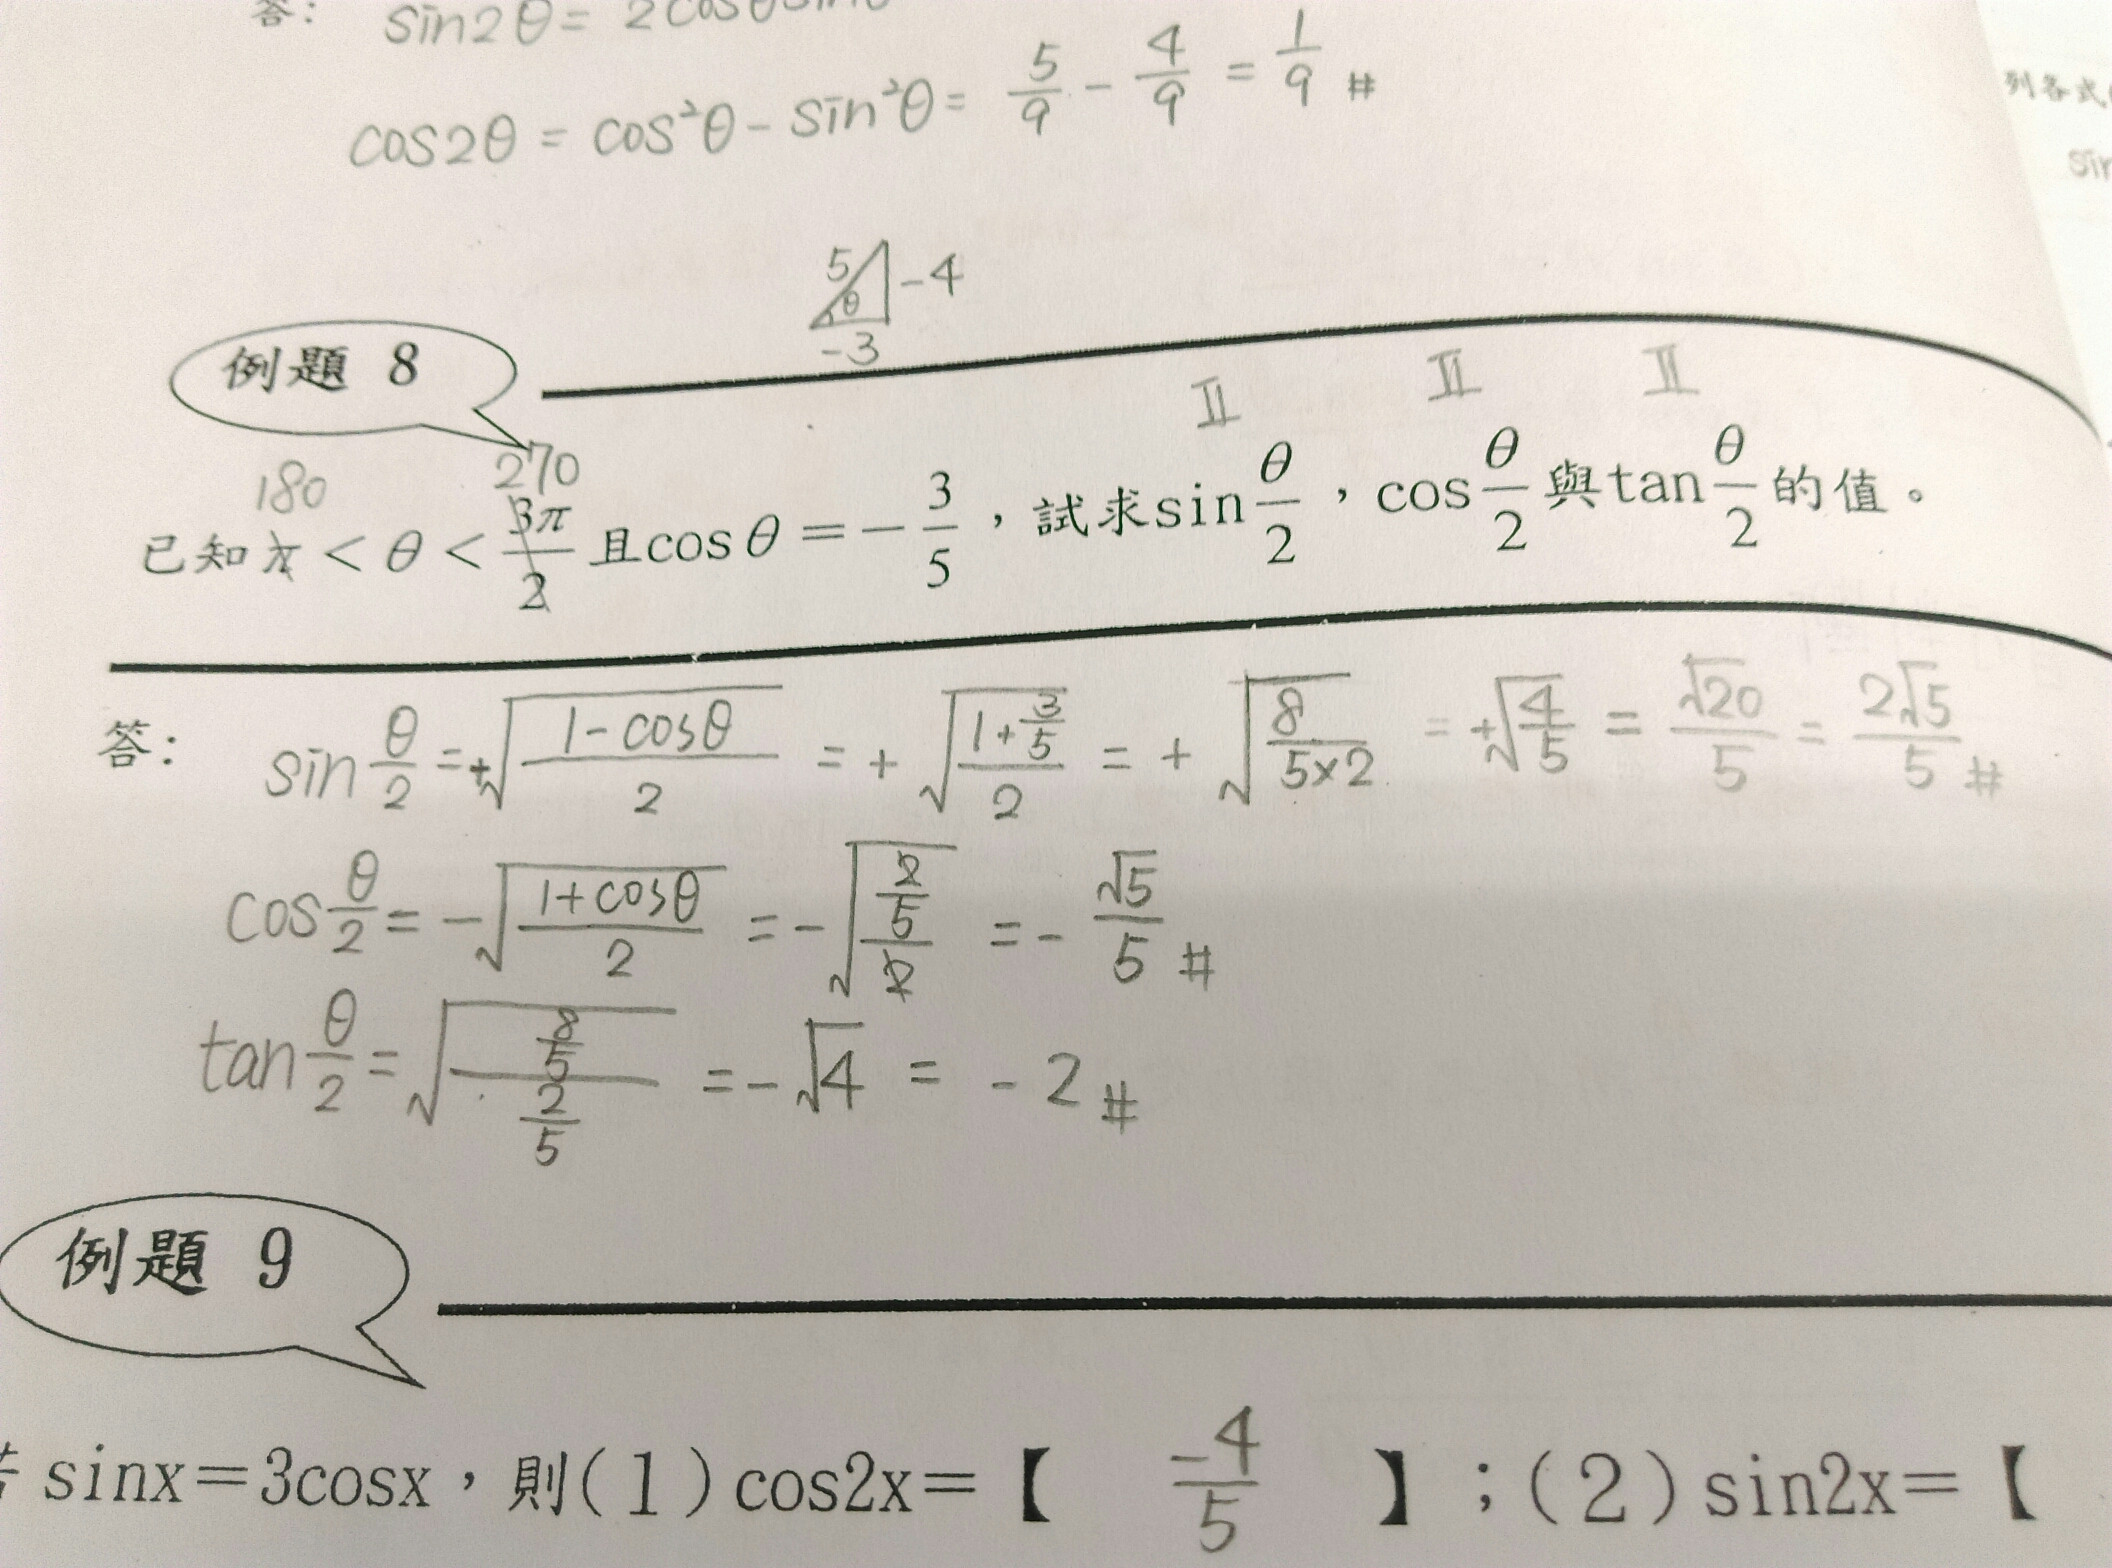 答: sin2θ = 2cosθsinθ
cos2θ = cos²θ - sin²θ = 5/9 - 4/9 = 1/9 #
列各式
sin
5 θ -4
-3
例題 8
II II II
180 270
已知π < θ < 3π/2 且cosθ = -3/5，試求sin θ/2，cos θ/2 與tan θ/2 的值。
答: sin θ/2 = +√((1-cosθ)/2) = +√((1+3/5)/2) = +√(8/(5×2)) = +√(4/5) = √20/5 = 2√5/5 #
cos θ/2 = -√((1+cosθ)/2) = -√((2/5)/2) = -√5/5 #
tan θ/2 = √((8/5)/(2/5)) = -√4 = -2 #
例題 9
若 sinx=3cosx，則(1)cos2x=【 -4/5 】；(2)sin2x=【